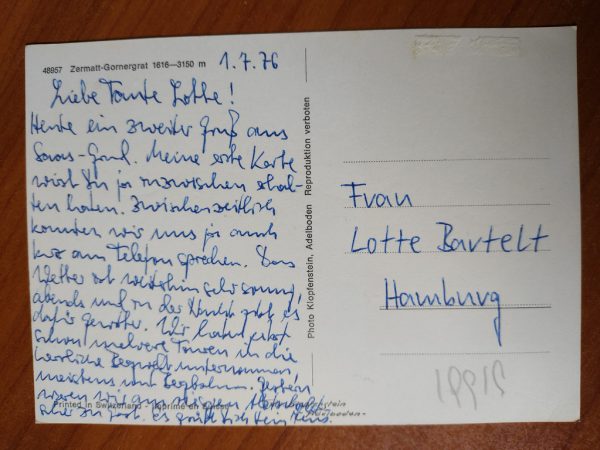 48957 Zermatt-Gornergrat 1616—3150 m
1.7.76
Liebe Tante Lotte!
Heute ein zweiter Gruß aus
Saas-Grund. Meine erste Karte
wirst Du ja inzwischen erhal-
ten haben. Zwischenzeitlich
konnten wir uns ja auch
kurz am Telefon sprechen. Das
Wetter ist weiterhin sehr sonnig,
abends und in der Nacht gibt es
dafür Gewitter. Wir haben jetzt
schon mehrere Touren in die
herrliche Bergwelt unternommen,
meistens mit Bergbahn. Gestern
waren wir am
aber zu Es grüßt Dich Dein
Printed in Switzerland - Imprimé en Suisse
Photo Klopfenstein, Adelboden Reproduktion verboten
Frau
Lotte Bartelt
Hamburg
Adelboden